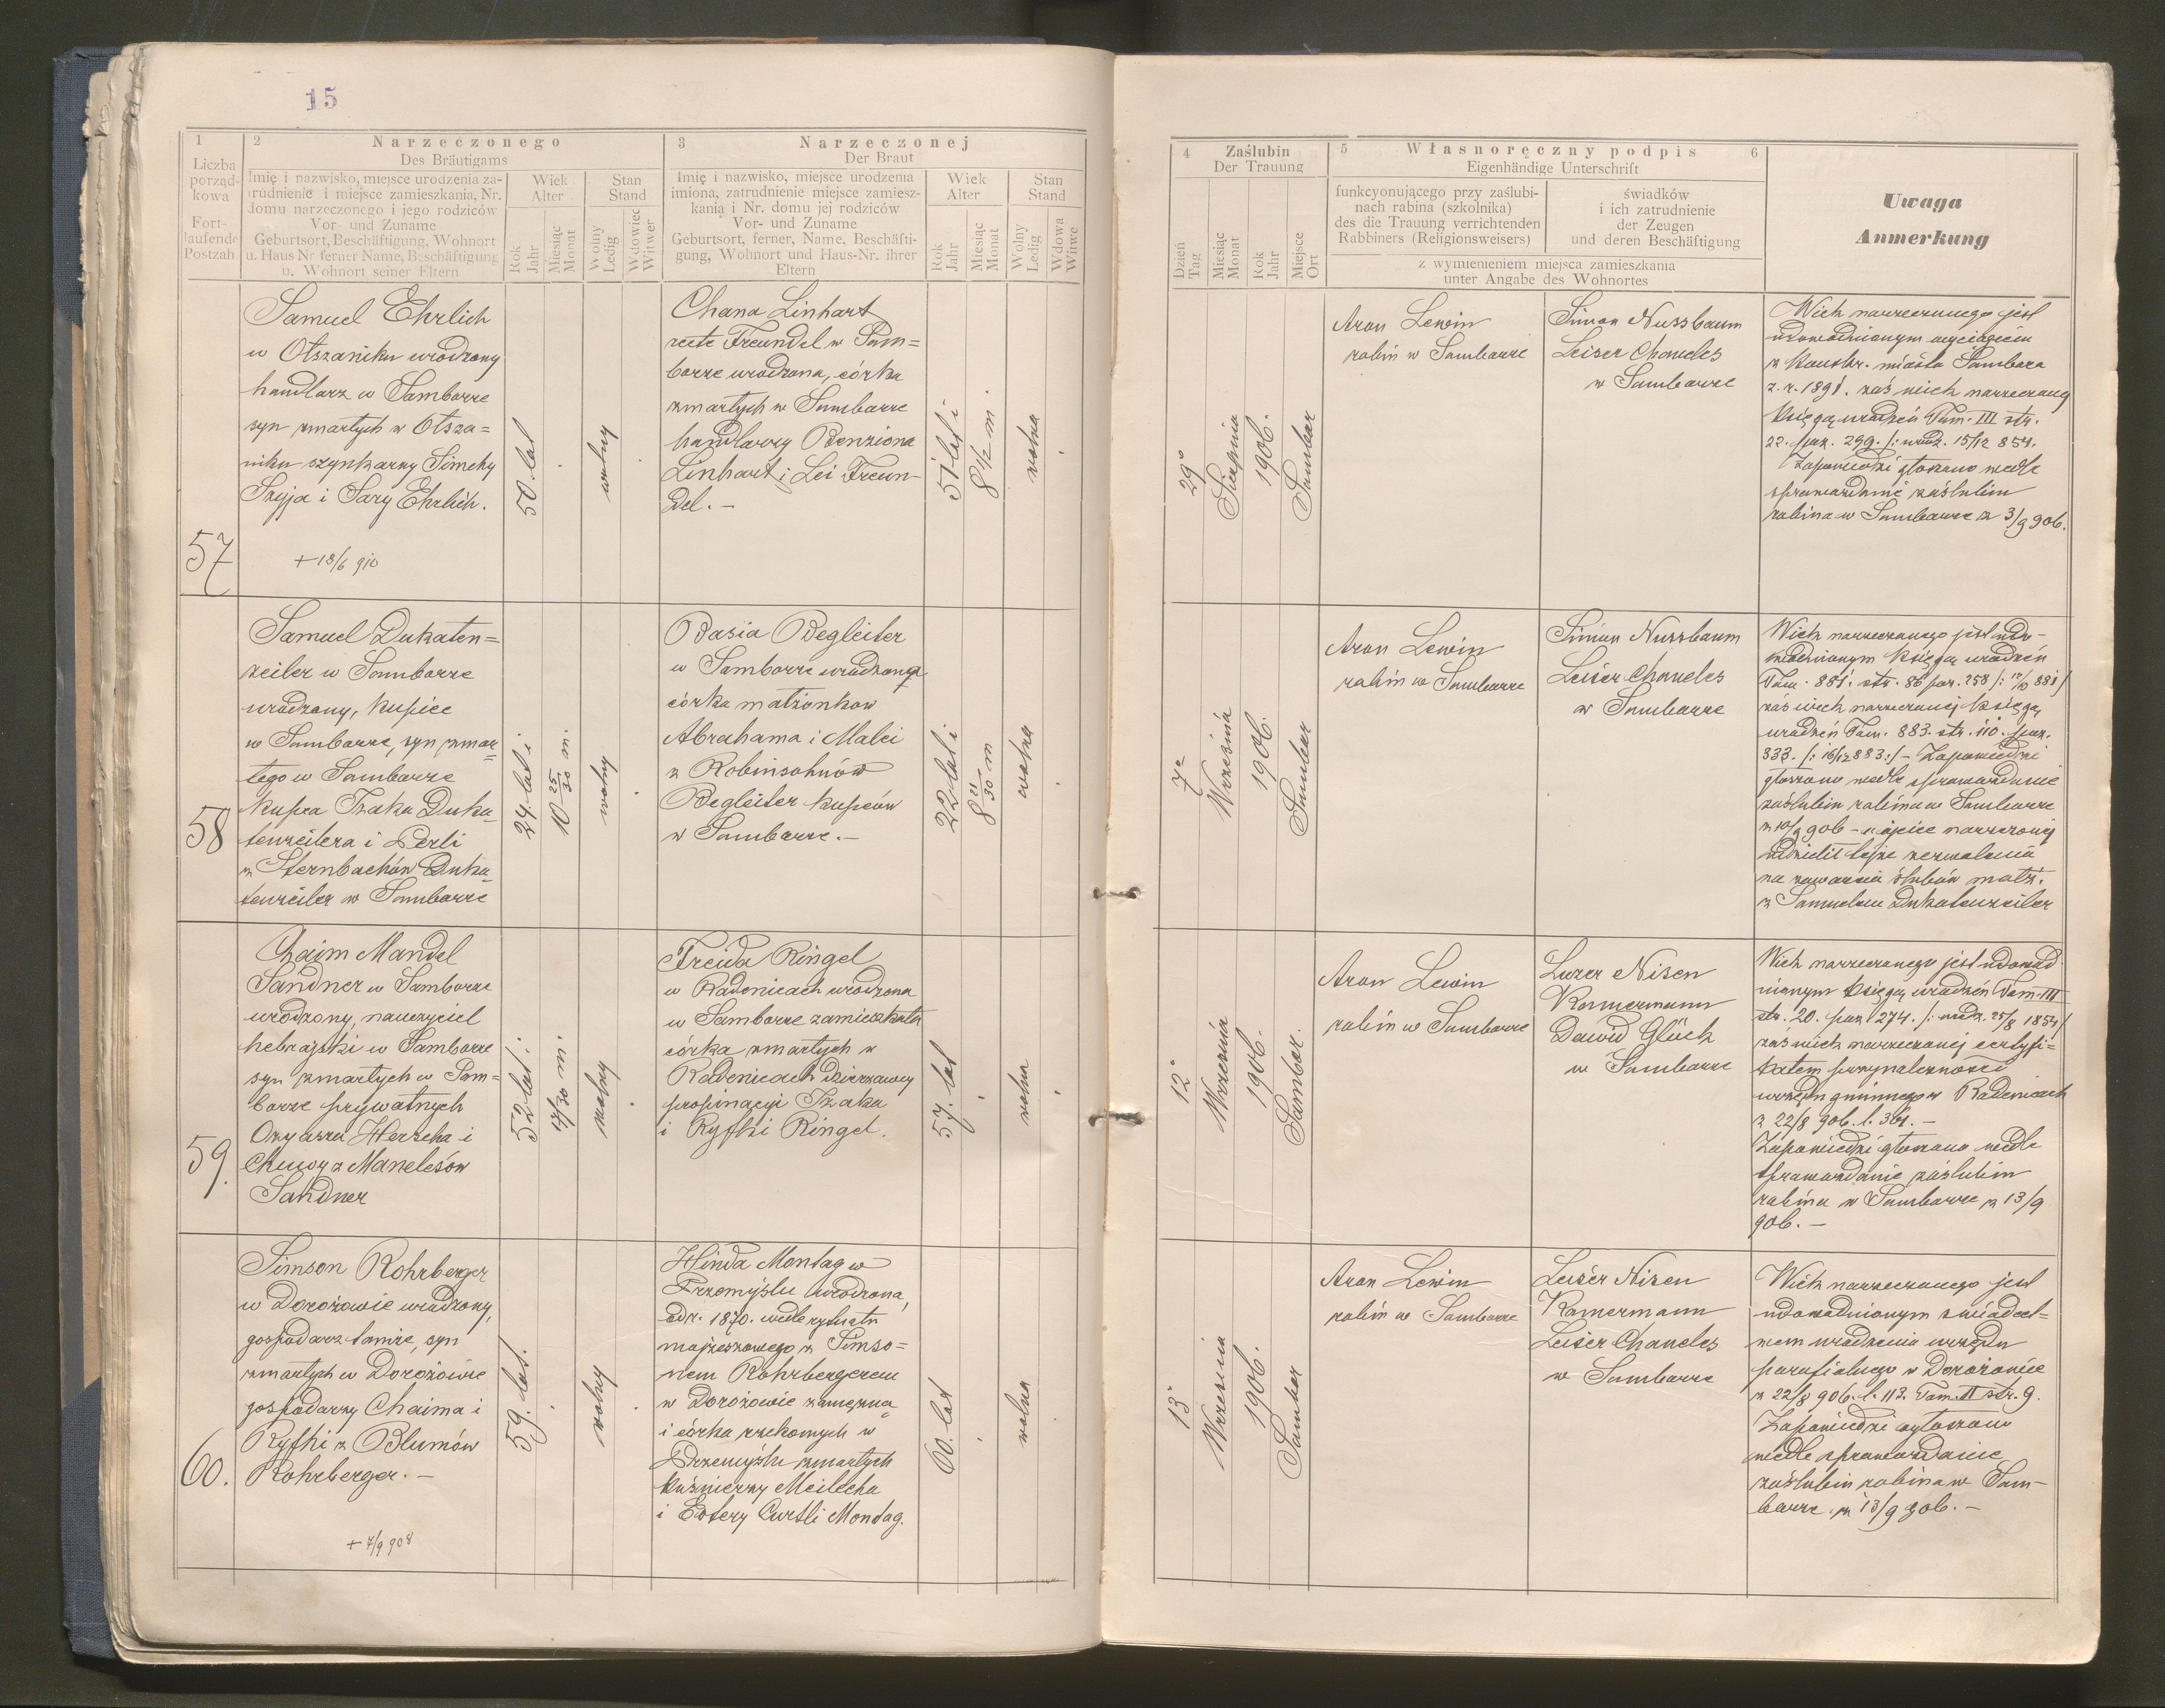 15
1
2 Narzeczonego
Des Bräutigams
3 Narzeczonej
Der Braut
Liczba
porząd-
kowa
Fort-
laufende
Postzah
Imię i nazwisko, miejsce urodzenia za-
trudnienie i miejsce zamieszkania, Nr.
domu narzeczonego i jego rodziców
Vor- und Zuname
Geburtsort, Beschäftigung, Wohnort
u. Haus Nr ferner Name, Beschäftigung
u. Wohnort seiner Eltern
Wiek
Alter
Rok
Jahr
Miesiąc
Monat
Stan
Stand
Wolny
Ledig
Wdowiec
Witwer
Imię i nazwisko, miejsce urodzenia
imiona, zatrudnienie miejsce zamiesz-
kania i Nr. domu jej rodziców
Vor- und Zuname
Geburtsort, ferner, Name, Beschäfti-
gung, Wohnort und Haus-Nr. ihrer
Eltern
Wiek
Alter
Rok
Jahr
Miesiąc
Monat
Stan
Stand
Wolny
Ledig
Wdowa
Witwe
4 Zaślubin
Der Trauung
Dzień
Tag
Miesiąc
Monat
Rok
Jahr
Miejsce
Ort
5 Własnoręczny podpis 6
Eigenhändige Unterschrift
funkcyonującego przy zaślubi-
nach rabina (szkolnika)
des die Trauung verrichtenden
Rabbiners (Religionsweisers)
świadków
i ich zatrudnienie
der Zeugen
und deren Beschäftigung
z wymienieniem miejsca zamieszkania
unter Angabe des Wohnortes
Uwaga
Anmerkung
57
Samuel Ehrlich
w Otszaniku urodzony
handlarz w Samborze
syn zmarłych w Otsza=
niku szynkarzy Simchy
Szyja i Sary Ehrlich.
+ 18/6 910
50. lat
wolny
Chana Linhart
recte Freundel w Sam=
borze urodzona, córka
zmarłych w Samborze
handlarzy Benziona
Linhart i Lei Freun-
del. –
51 lat i
8 1/2 m.
wolna
29°
Sierpnia
1906.
Sambor
Aron Lewin
rabin w Samborze
Simon Nussbaum
Leiser Chameles
w Samborze
Wiek narzeczonego jest
udowodnionym wyciągiem
z miasta Sambora
z. r. 1891. zaś wiek narzeczonej
księgą urodzeń Tom. III str.
22. poz. 299. /: urodz. 15/12 854.
Zapowiedzi głoszono wedle
sprawozdania zaślubin
rabina w Samborze z 3/9 906.
58
Samuel Dukaten=
zeiler w Samborze
urodzony, kupiec
w Samborze, syn zmar=
łego w Samborze
kupca Izaka Duka=
tenzeilera i Perli
z Sternbachów Duka=
tenzeiler w Samborze
24. lat i
10 25/30 m.
wolny
Basia Begleiter
w Samborze urodzona
córka małżonków
Abrahama i Malci
z Robinsohnów
Begleiter kupców
w Samborze. –
22 lat i
8 21/30 m
wolna
7°
Września
1906.
Sambor
Aron Lewin
rabin w Samborze
Simon Nussbaum
Leiser Chameles
w Samborze
Wiek narzeczonego jest udo-
wodnionym księgą urodzeń
Tom. 881. str. 86 poz. 258 /: 12/10 881/
zaś wiek narzeczonej księgą
urodzeń Tom. 883. str. 110. poz.
333. /: 16/12 883:/ – Zapowiedzi
głoszono wedle sprawozdania
zaślubin rabina w Samborze
z 10/9 906 – a ojciec narzeczonej
udzielił tejże zezwolenia
na zawarcie ślubów małż.
z Samuelem Dukatenzeiler
59.
Chaim Mandel
Sandner w Samborze
urodzony, nauczyciel
hebrajski w Samborze
syn zmarłych w Sam=
borze prywatnych
Ozyasza Herscha i
Chuwy z Manelesów
Sandner
52 lat i
17/30 m.
wolny
Freida Ringel
w Radenicach urodzona
w Samborze zamieszkała
córka zmarłych w
Radenicach dzierżawcy
propinacyi Izaka
i Ryfki Ringel.
57. lat
wolna
12°
Września
1906.
Sambor.
Aron Lewin
rabin w Samborze
Luzer Nisen
Kormermann
Dawid Glück
w Samborze
Wiek narzeczonego jest udowod
nionym księgą urodzeń Tom III
str. 20. poz. 274. /: urodz. 25/8 1854/
zaś wiek narzeczonej certyfi=
katem przynależności
urzędu gminnego w Radenicach
z 22/8 906. l. 361. –
Zapowiedzi głoszono wedle
sprawozdania zaślubin
rabina w Samborze z 13/9
906. –
60.
Simson Rohrberger
w Dorożowie urodzony,
gospodarz tamże, syn
zmarłych w Dorożowie
gospodarzy Chaima i
Ryfki z Blumów
Rohrberger. –
+ 7/9 908
59. lat.
wolny
Hinda Montag w
Przemyślu urodzona,
od r. 1870. wedle rytuału
mojżeszowego z Simso=
nem Rohrbergerem
w Dorożowie zamężna
i córka rzekomych w
Przemyślu zmarłych
kuśnierzy Meilecha
i Estery Curtli Montag.
60. lat
wolna
13°
Września
1906.
Sambor
Aron Lewin
rabin w Samborze
Leiser Nisen
Kamermann
Leiser Chameles
w Samborze
Wiek narzeczonego jest
udowodnionym świadect=
wem urodzenia urzędu
parafialnego w Dorożowie
z 22/8 906. l. 113. Tom. II str. 9.
Zapowiedzi ogłoszono
wedle sprawozdanie
zaślubin rabina w Sam-
borze z 13/9 906. –